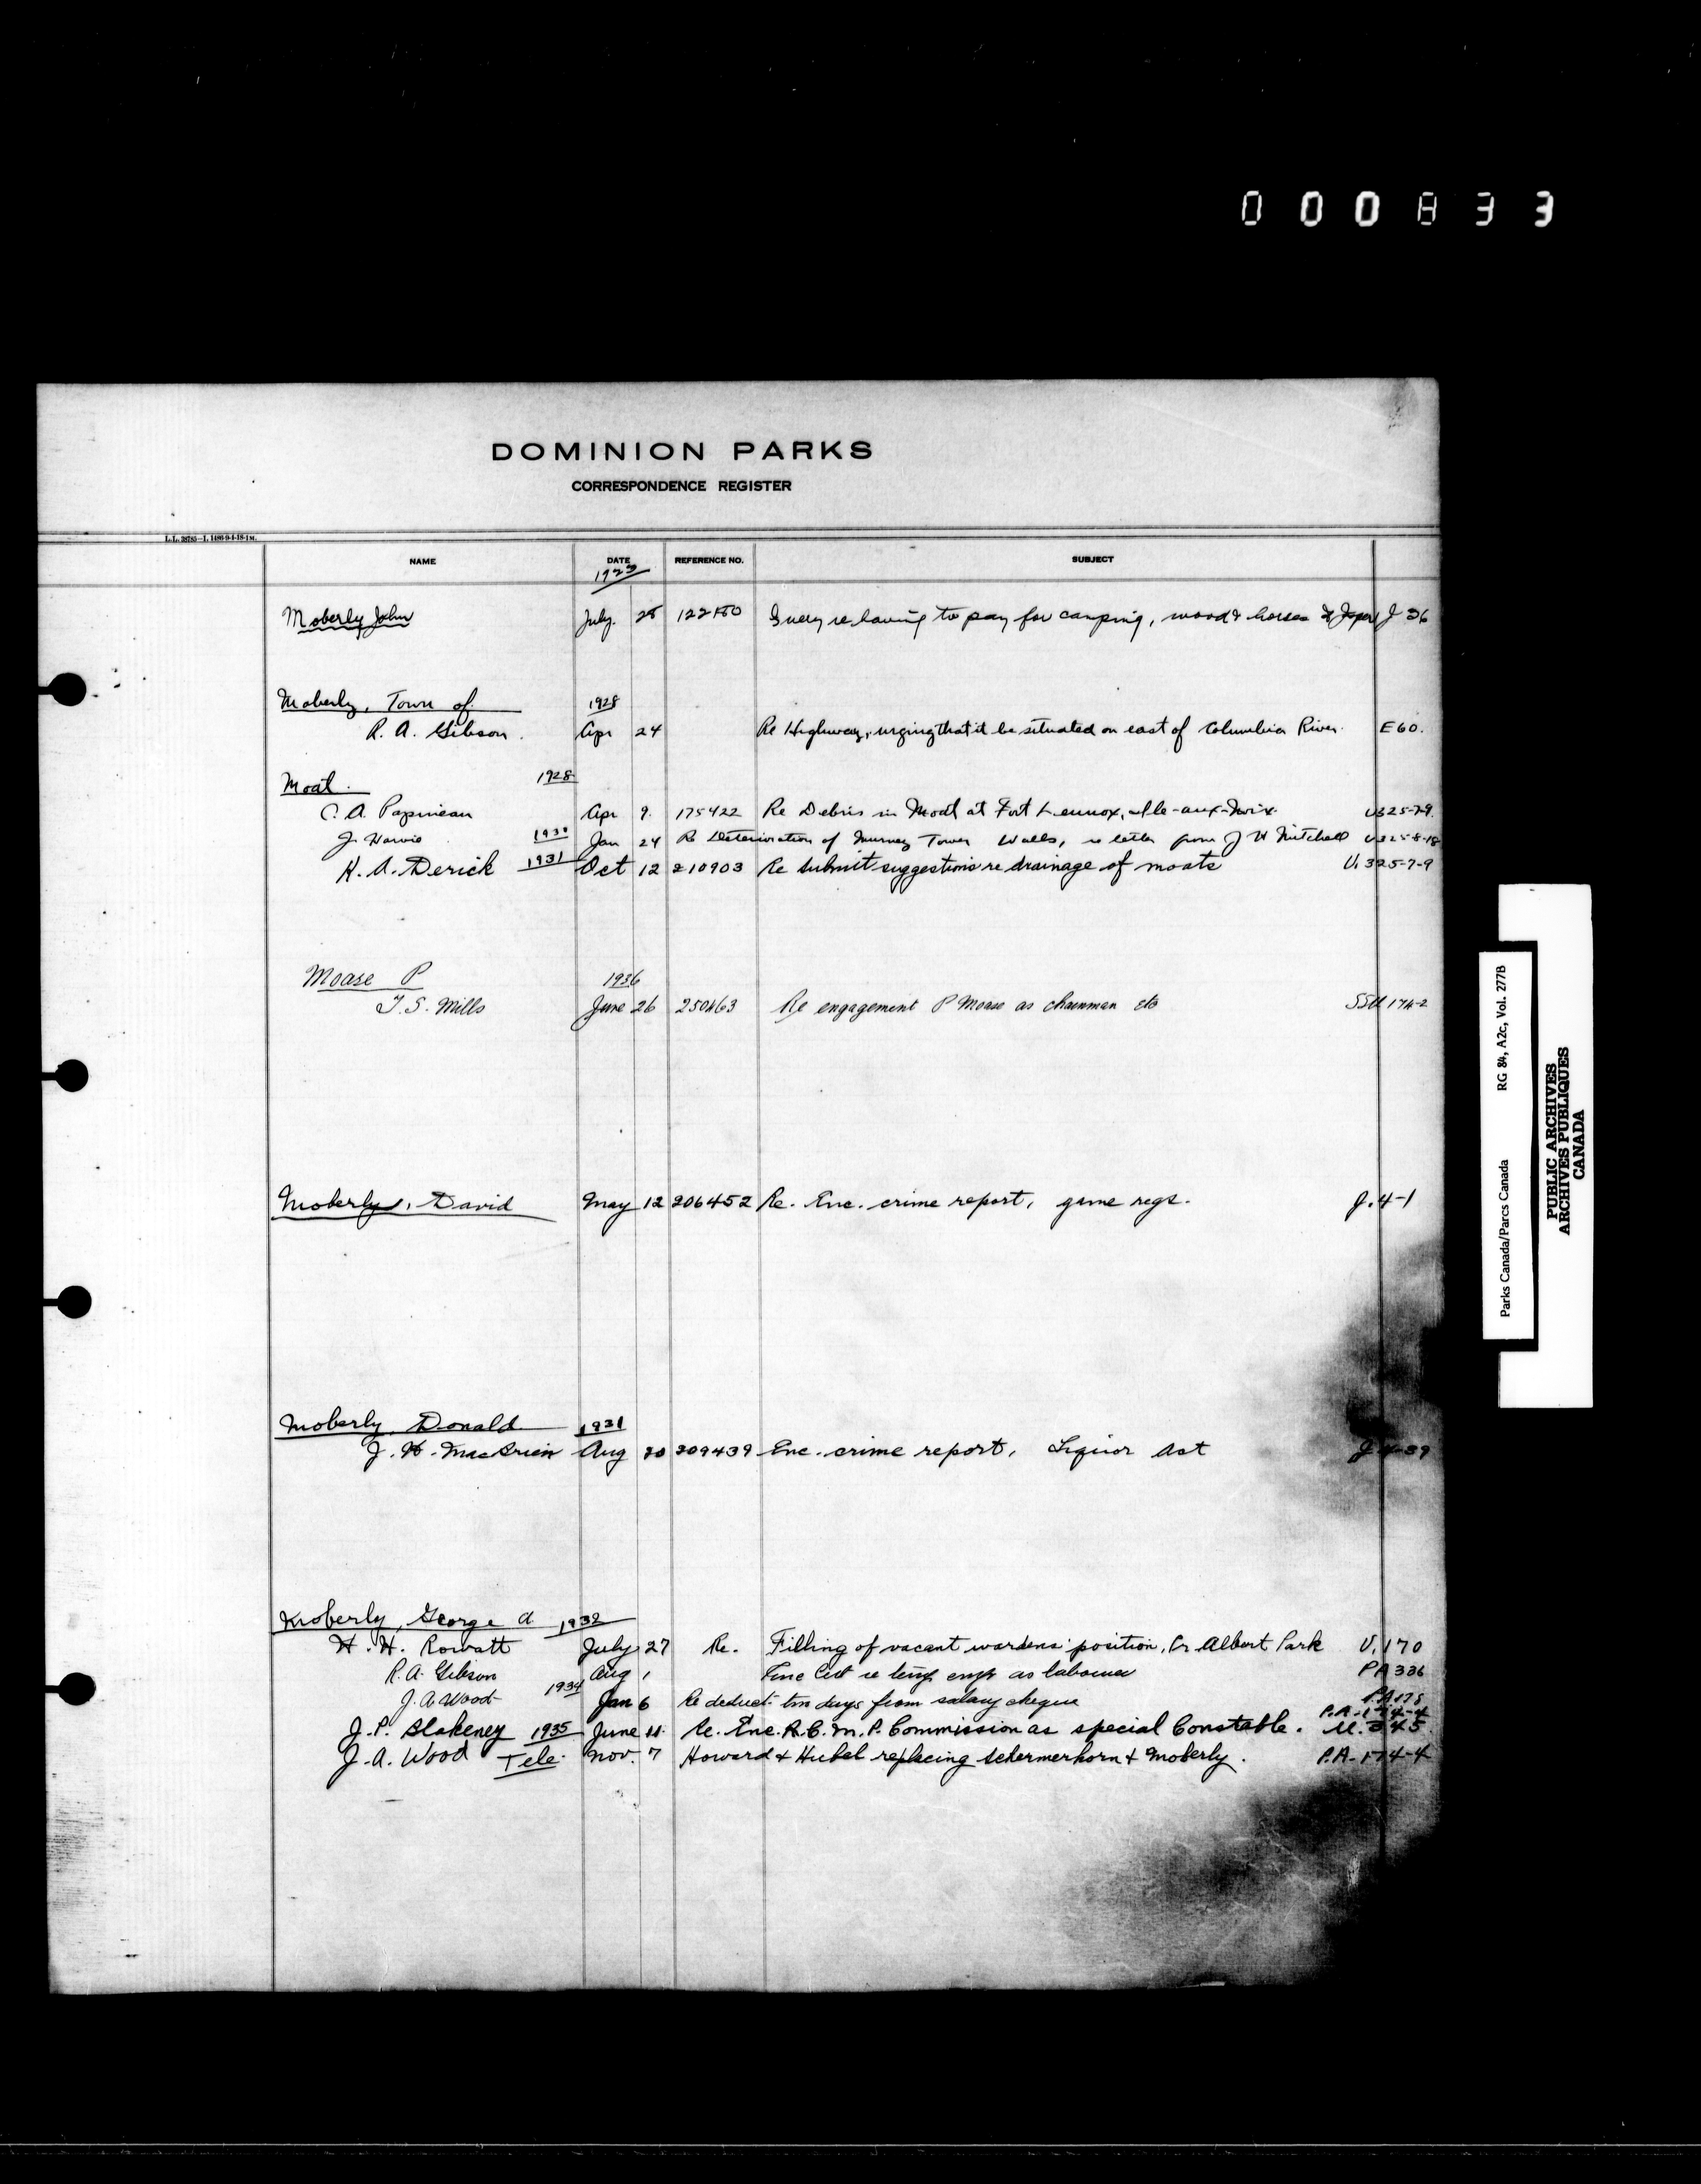 000833
DOMINION PARKS
CORRESPONDENCE REGISTER
NAME DATE REFERENCE NO. SUBJECT
1923
Moberly John July. 28 122180 re having to pay for camping, wood & horses J 36
Moberly, Town of 1928
R. A. Gibson. Apr 24 Re Highway, urging that it be situated on east of Columbia River. E60.
Moat. 1928
C. A. Papineau Apr 9. 175422 Re Debris in Moat at Fort Lennox, Ile-aux-Noix U325-7-9.
J. Harvie 1930 Jan 24 Re Deterioration of Murney Tower Walls, re letter from J H Mitchell U325-8-18
H. A. Derick 1931 Oct 12 210903 Re Submit suggestions re drainage of moats U.325-7-9
Moase P 1936
T. S. Mills June 26 250463 Re engagement P Moase as chainman etc 174-2
Moberly, David May 12 206452 Re. Enc. crime report, game regs. J.4-1
Moberly, Donald 1931
J. H. MacBrien Aug 20 209439 Enc. crime report, Liquor Act J
Moberly, George A. 1932
H. H. Rowatt July 27 Re. Filling of vacant wardens position, Pr Albert Park U.170
R. A. Gibson Aug 1 as labourer PA 336
J. A. Wood 1934 Jan 6 Re deduct ten days from salary cheque P.A 178
P.A.-174-4
J. P. Blakeney 1935 June 11. Re. Enc. R.C.M.P. Commission as special Constable. U.345.
J. A. Wood Tele. Nov. 7 Howard & Hubel replacing Schermerhorn & Moberly. P.A-174-4
Parks Canada/Parcs Canada RG 84, A2c, Vol. 277B
PUBLIC ARCHIVES
ARCHIVES PUBLIQUES
CANADA